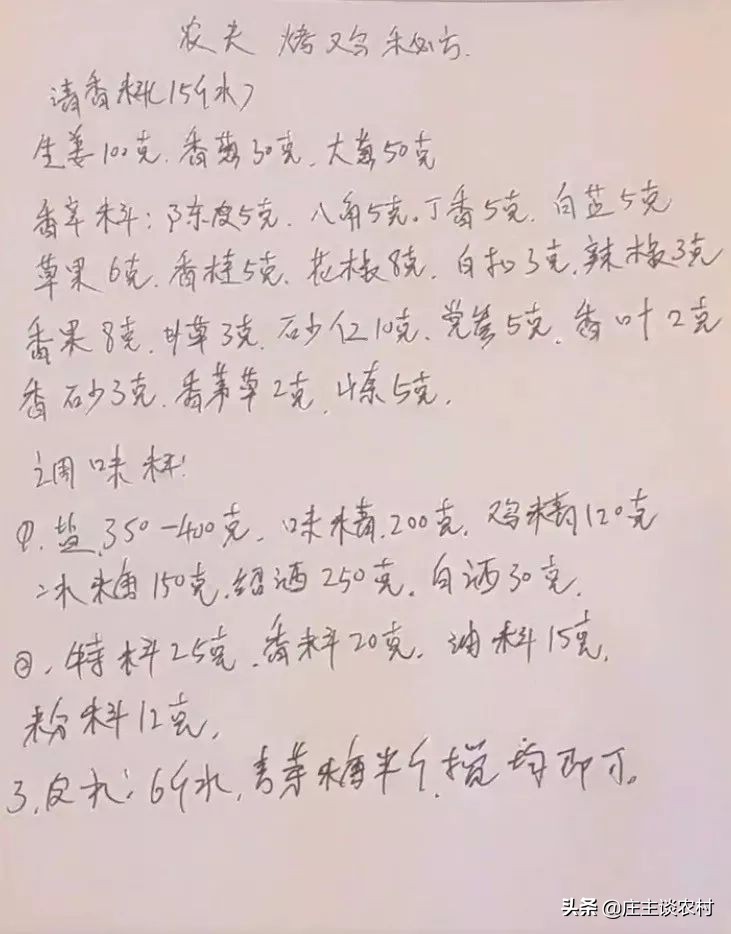 农夫烤鸡秘方.
清香料(15斤水)
生姜100克.香葱30克.大葱50克
香辛料:陈皮5克.八角5克.丁香5克.白芷5克
草果6克.香桂5克.花椒8克.白扣3克.辣椒3克
香果8克.甘草3克.砂仁10克.党参5克.香叶2克
香砂3克.香茅草2克.山奈5克.
调味料:
①.盐.350-400克.味精.200克.鸡精120克
冰糖150克.绍酒250克.白酒30克.
②.特料25克.香料20克.油料15克,
粉料12克,
3.皮水:6斤水,麦芽糖半斤.搅均即可。
头条 @庄主谈农村